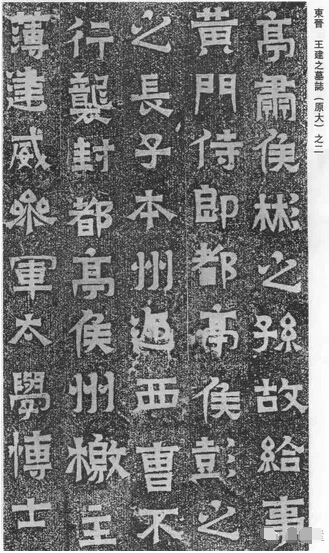 東晉 王建之墓誌(原大)之二
亭肅侯彬之孫故給事
黃門侍郎都亭侯彭之
之長子本州迎西曹不
行襲封都亭侯州檄主
薄建威參軍太學博士